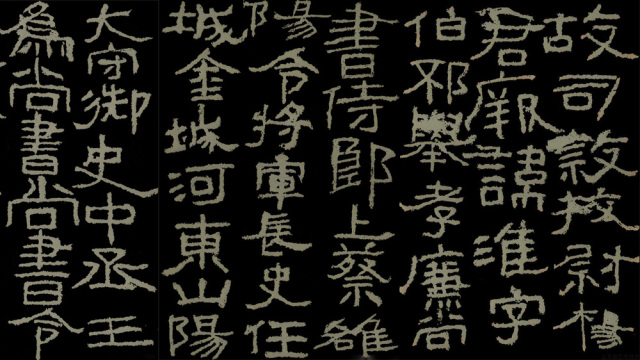 故司隸校尉楊
君厥諱淮字
伯邳舉孝廉尚
書侍郎上蔡雒
陽令將軍長史任
城金城河東山陽
大守御史中丞王
為尚書尚書令